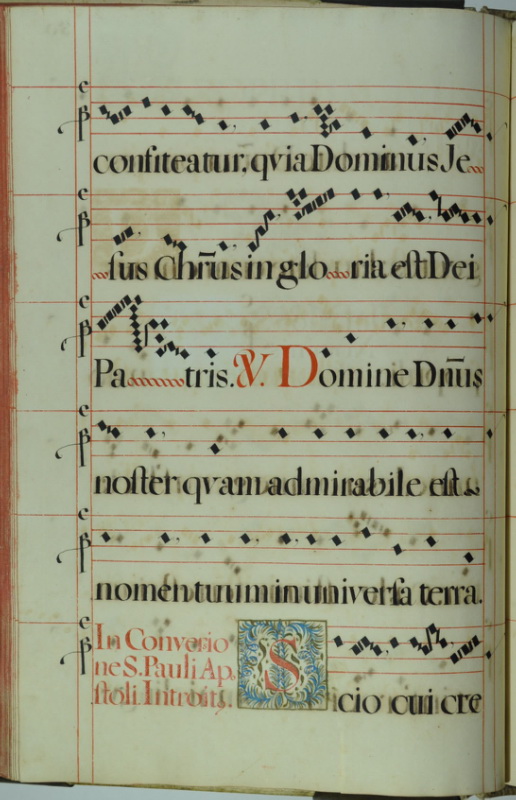 confiteatur, qvia Dominus Je
sus Chr̄us in glo ria est Dei
Pa tris. ℣. Domine Dn̄us
noster qvam admirabile est
nomen tuum in universa terra.
In Conversio
ne S. Pauli Ap,
stoli. Introits.
Scio cui cre